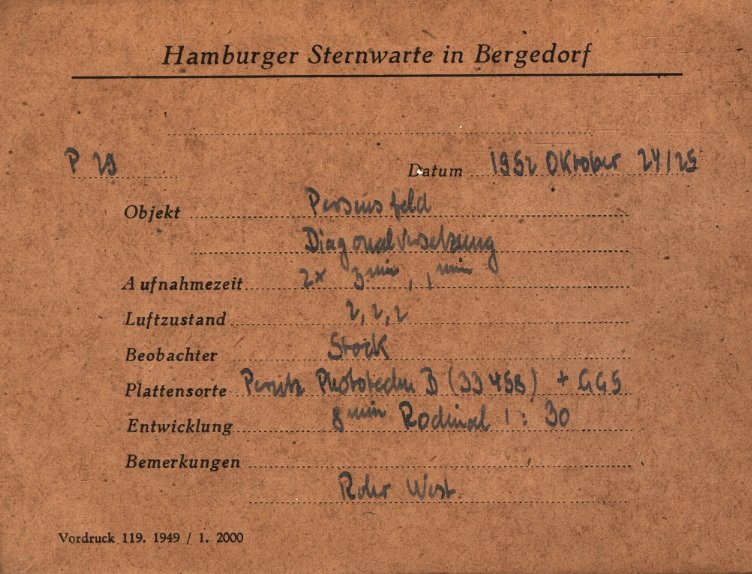 Hamburger Sternwarte in Bergedorf
P 29 Datum 1952 Oktober 24/25
Objekt Perseusfeld
Diagonalversetzung
Aufnahmezeit 2x 3 min, 1 min
Luftzustand 2, 2, 2
Beobachter Stock
Plattensorte Perutz Phototechn B (33458) + GG5
Entwicklung 8 min Rodinal 1 : 30
Bemerkungen
Rohr West
Vordruck 119. 1949 / 1. 2000